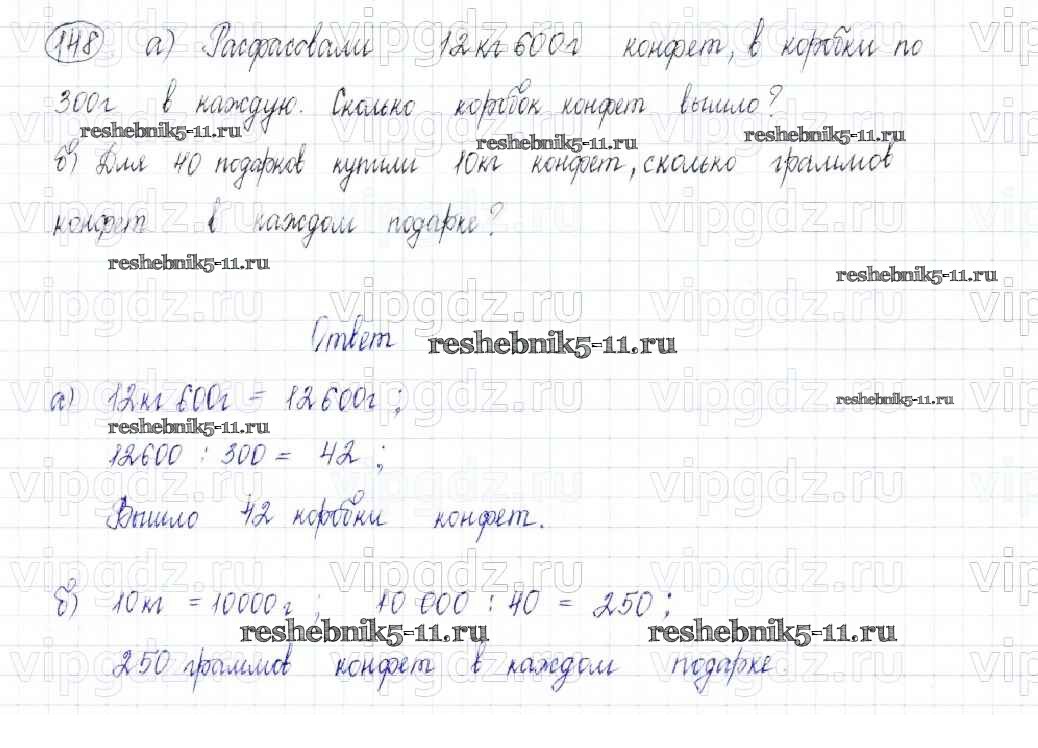 148 а) Расфасовали 12кг 600г конфет, в коробки по
300г в каждую. Сколько коробок конфет вышло?
reshebnik5-11.ru reshebnik5-11.ru reshebnik5-11.ru
б) Для 40 подарков купили 10кг конфет, сколько граммов
конфет в каждом подарке?
reshebnik5-11.ru reshebnik5-11.ru
Ответ reshebnik5-11.ru
а) 12кг 600г = 12600г; reshebnik5-11.ru
reshebnik5-11.ru
12600 : 300 = 42;
Вышло 42 коробки конфет.
б) 10кг = 10000г; 10 000 : 40 = 250;
reshebnik5-11.ru reshebnik5-11.ru
250 граммов конфет в каждом подарке.
vipgdz.ru vipgdz.ru vipgdz.ru vip